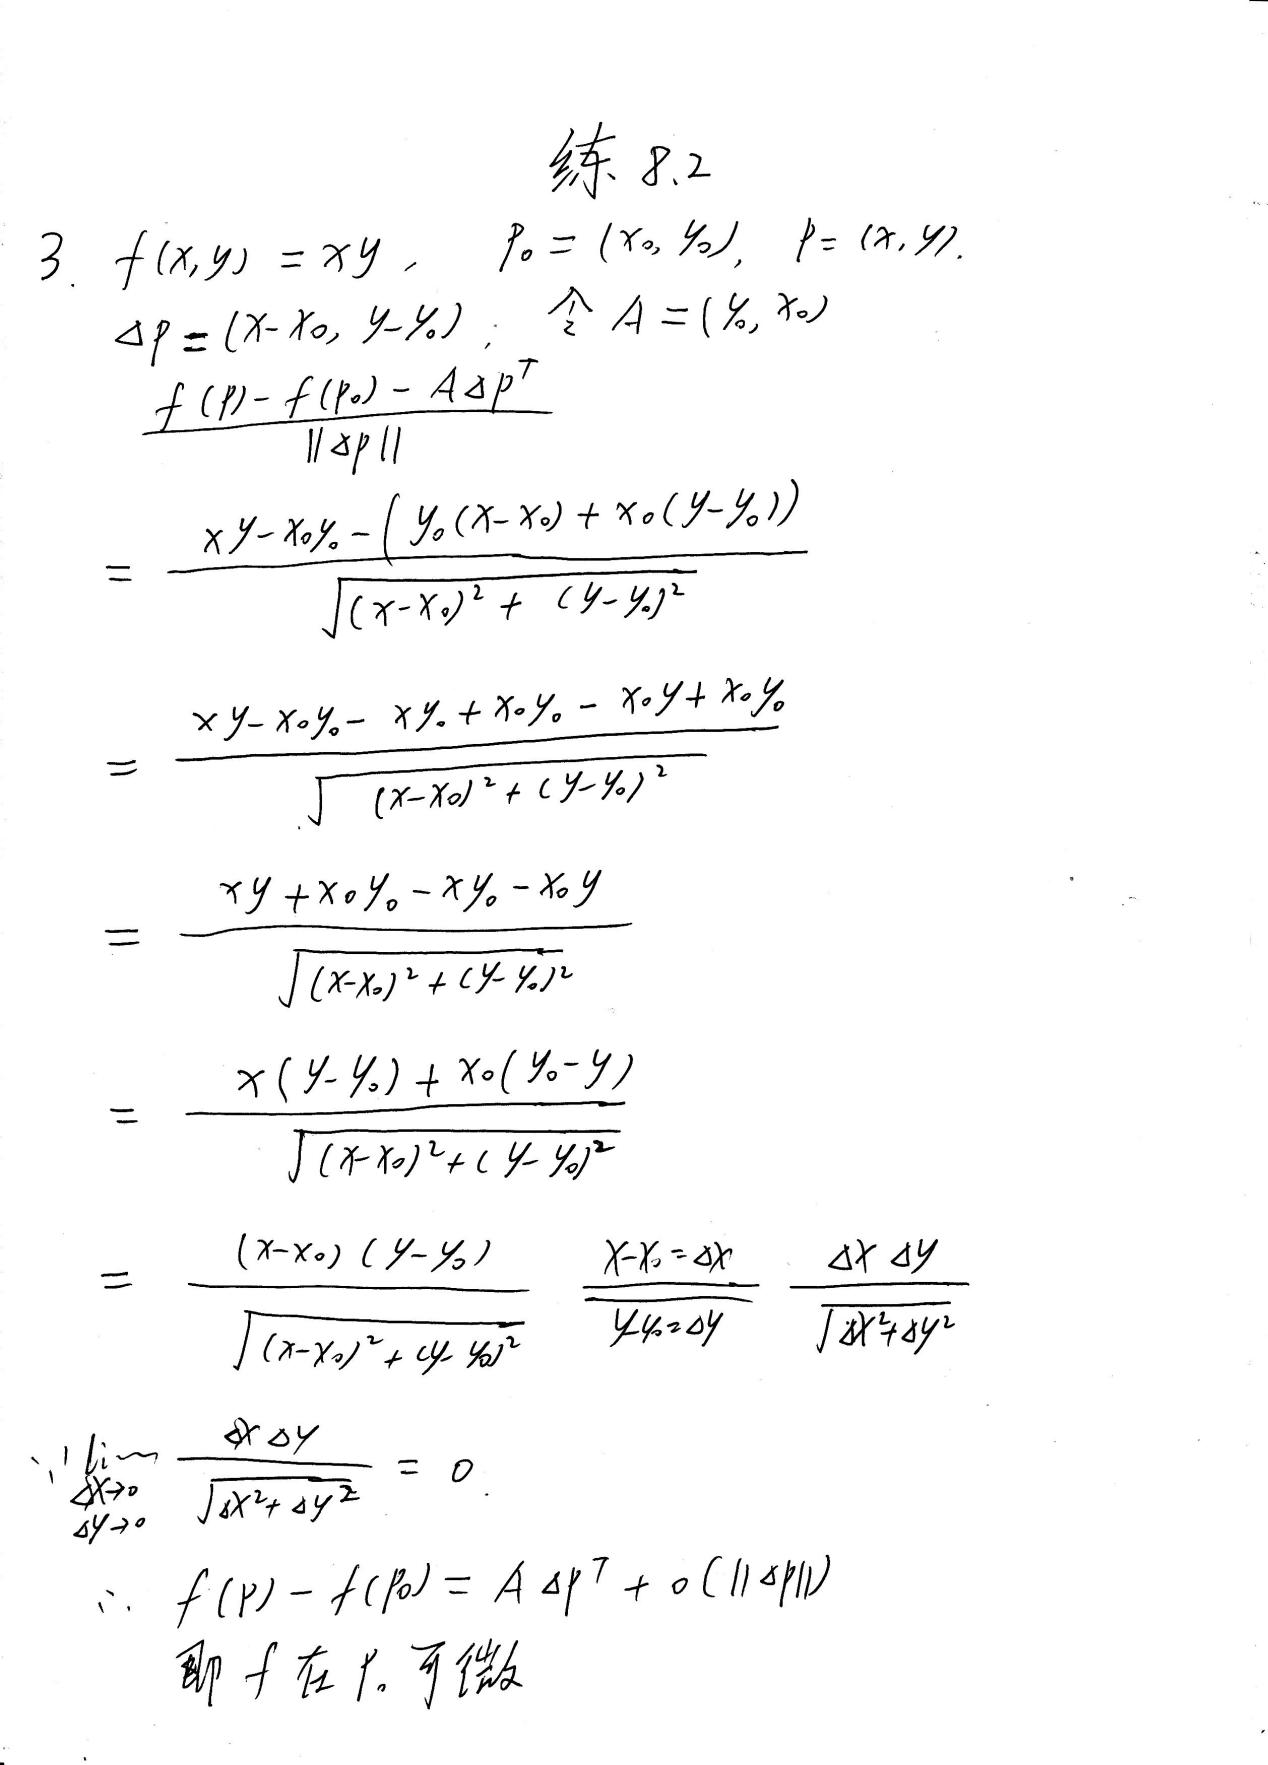 练 8.2
3. f(x,y) = xy, P₀ = (x₀, y₀), P = (x, y).
ΔP = (x-x₀, y-y₀), 令 A = (y₀, x₀)
f(P) - f(P₀) - AΔPᵀ
‖ΔP‖
= xy - x₀y₀ - (y₀(x-x₀) + x₀(y-y₀))
√(x-x₀)² + (y-y₀)²
= xy - x₀y₀ - xy₀ + x₀y₀ - x₀y + x₀y₀
√(x-x₀)² + (y-y₀)²
= xy + x₀y₀ - xy₀ - x₀y
√(x-x₀)² + (y-y₀)²
= x(y-y₀) + x₀(y₀-y)
√(x-x₀)² + (y-y₀)²
= (x-x₀)(y-y₀) x-x₀=Δx Δx Δy
√(x-x₀)² + (y-y₀)² y-y₀=Δy √Δx²+Δy²
∵ lim Δx Δy = 0.
Δx→0
Δy→0 √Δx²+Δy²
∴ f(P) - f(P₀) = AΔPᵀ + o(‖ΔP‖)
即 f 在 P₀ 可微